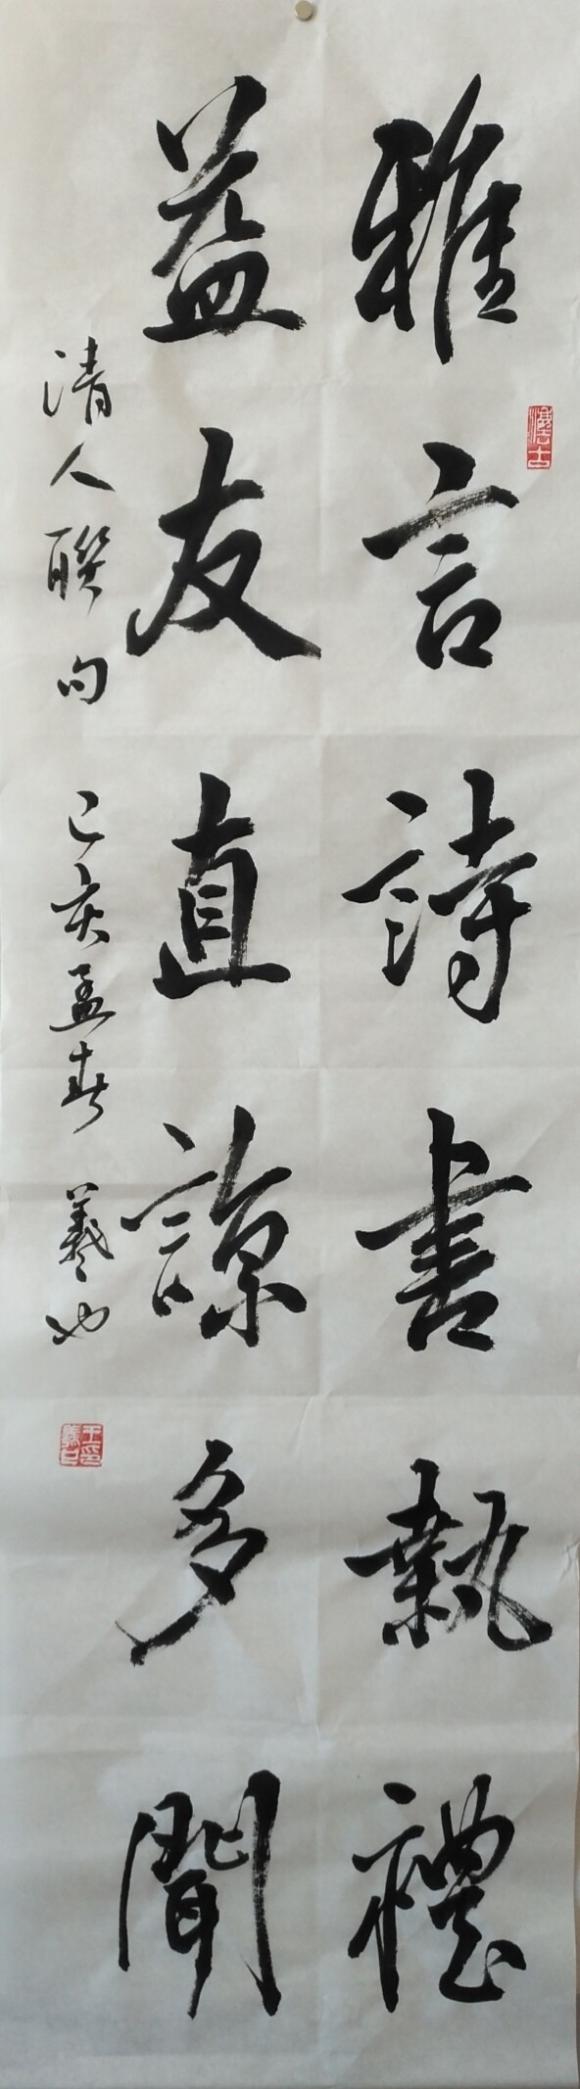 雅言詩書執禮
益友直諒多聞
清人聯句 己亥孟春 羲也